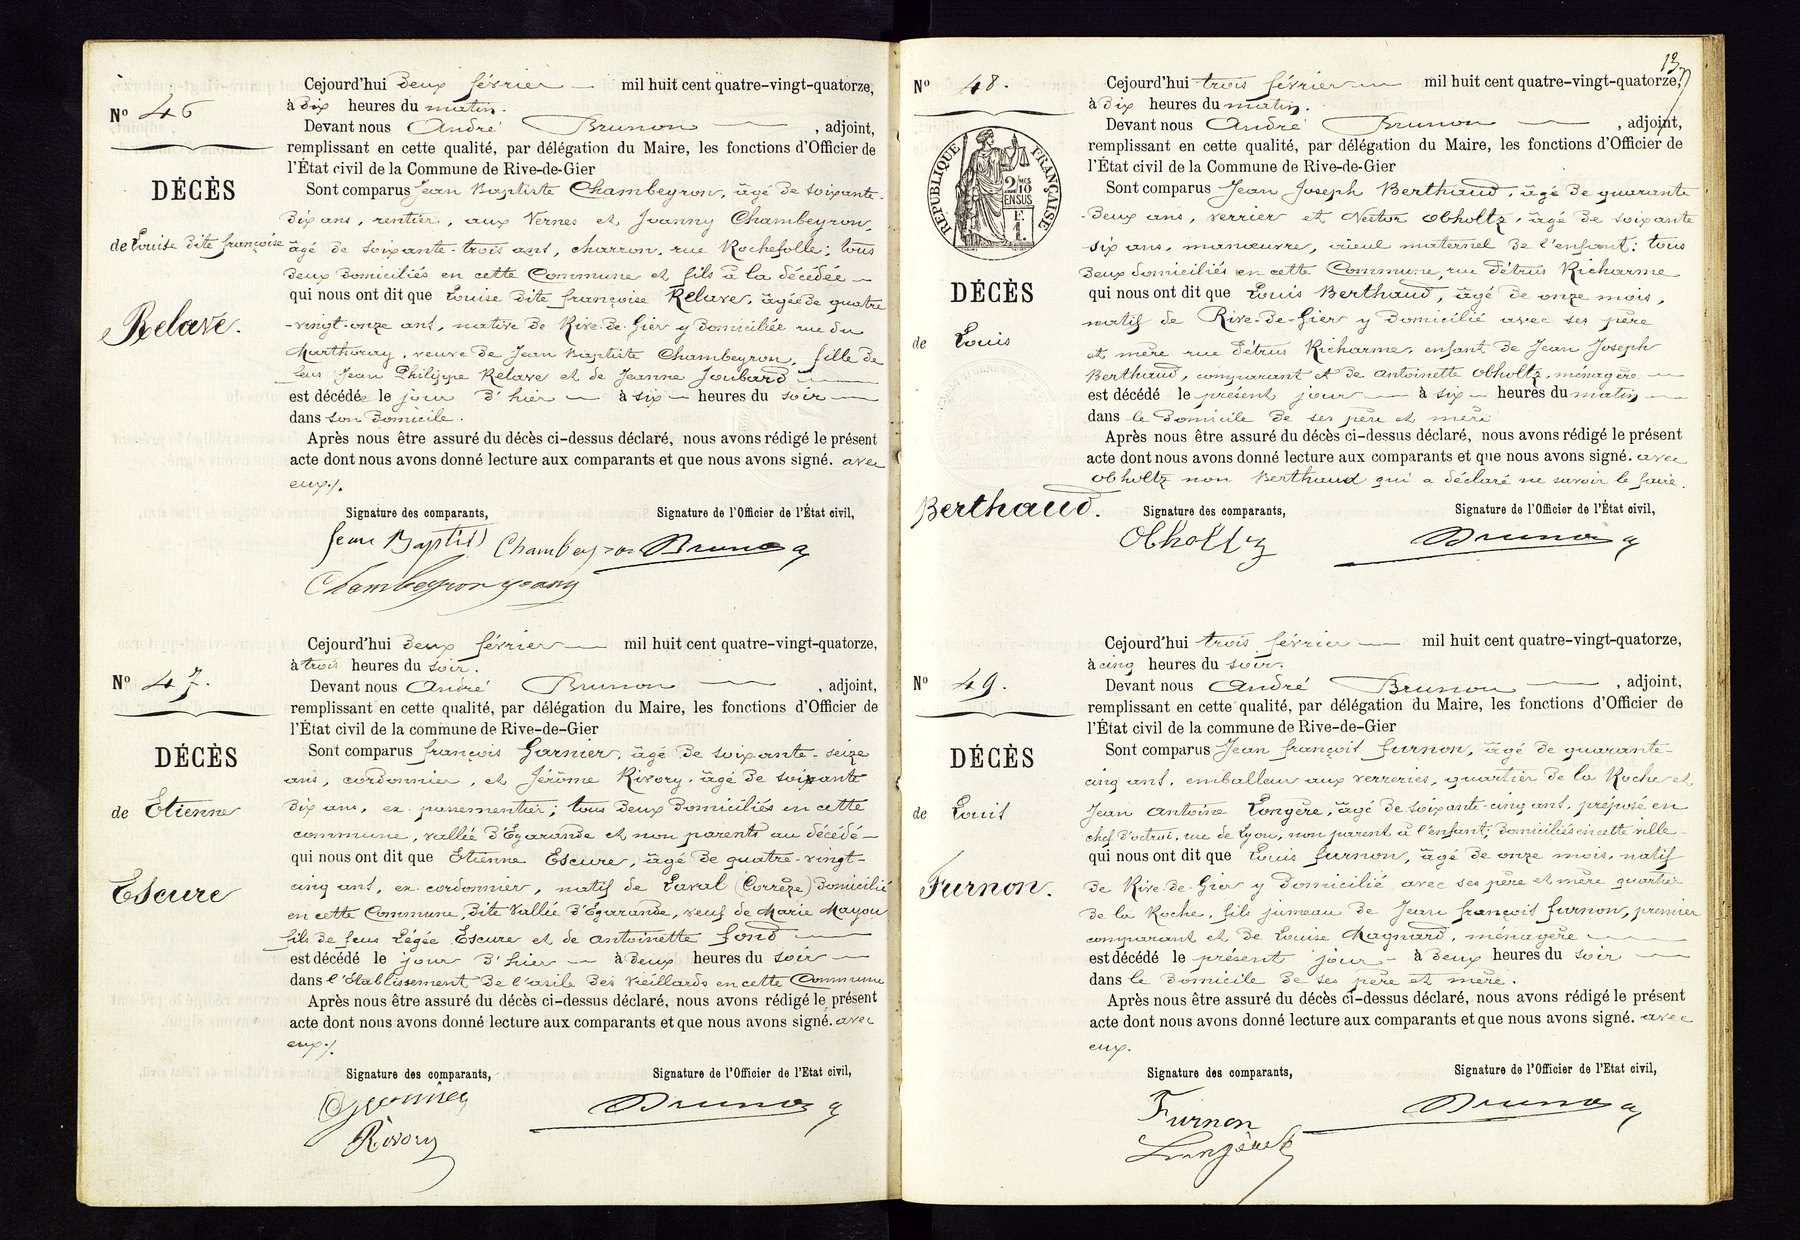 Nº 46
DÉCÈS
de Louise dite françoise
Relave.
Cejourd'hui deux février — mil huit cent quatre-vingt-quatorze,
à dix heures du matin.
Devant nous André Brunon — , adjoint,
remplissant en cette qualité, par délégation du Maire, les fonctions d'Officier de
l'État civil de la Commune de Rive-de-Gier
Sont comparus Jean Baptiste Chambeyron, âgé de soixante-
dix ans, rentier, aux Vernes et Joanny Chambeyron,
âgé de soixante-trois ans, charron, rue Rochefolle; tous
deux domiciliés en cette Commune et fils à la décédée —
qui nous ont dit que Louise dite françoise Relave, âgée de quatre
-vingt-onze ans, native de Rive-de-Gier y domiciliée rue du
Marthouray, veuve de Jean Baptiste Chambeyron, fille de
feus Jean Philippe Relave et de Jeanne Joubard —
est décédée le jour d'hier — à six — heures du soir —
dans son domicile.
Après nous être assuré du décès ci-dessus déclaré, nous avons rédigé le présent
acte dont nous avons donné lecture aux comparants et que nous avons signé. avec
eux./.
Signature des comparants, Signature de l'Officier de l'État civil,
Jean Baptist Chambeyron Brunon
Chambeyron joany
Nº 47.
DÉCÈS
de Etienne
Escure
Cejourd'hui deux février — mil huit cent quatre-vingt-quatorze,
à trois heures du soir.
Devant nous André Brunon — , adjoint,
remplissant en cette qualité, par délégation du Maire, les fonctions d'Officier de
l'État civil de la commune de Rive-de-Gier
Sont comparus françois Garnier, âgé de soixante-seize
ans, cordonnier, et Jérôme Rivory, âgé de soixante
dix ans, ex-passementier; tous deux domiciliés en cette
commune, vallée d'Egarande et non parents au décédé —
qui nous ont dit que Etienne Escure, âgé de quatre-vingt-
cinq ans, ex-cordonnier, natif de Laval (Corrèze) domicilié
en cette Commune, dite Vallée d'Egarande, veuf de Marie Mayou
fils de feus Légée Escure et de Antoinette fond —
est décédé le jour d'hier — à deux heures du soir —
dans l'établissement de l'asile des vieillards en cette Commune
Après nous être assuré du décès ci-dessus déclaré, nous avons rédigé le présent
acte dont nous avons donné lecture aux comparants et que nous avons signé. avec
eux./.
Signature des comparants, Signature de l'Officier de l'Etat civil,
Brunon
Rivory
13
Nº 48.
RÉPUBLIQUE FRANÇAISE
2/10
EN SUS
DÉCÈS
de Louis
Berthaud.
Cejourd'hui trois février — mil huit cent quatre-vingt-quatorze,
à dix heures du matin.
Devant nous André Brunon — , adjoint,
remplissant en cette qualité, par délégation du Maire, les fonctions d'Officier de
l'État civil de la Commune de Rive-de-Gier
Sont comparus Jean Joseph Berthaud, âgé de quarante
-deux ans, verrier et Nestor Obholtz, âgé de soixante
six ans, manœuvre, aïeul maternel de l'enfant: tous
deux domiciliés en cette Commune, rue Pétrus Richarme
qui nous ont dit que Louis Berthaud, âgé de onze mois,
natif de Rive-de-Gier y domicilié avec ses père
et mère rue Pétrus Richarme, enfant de Jean Joseph
Berthaud, comparant et de Antoinette Obholtz, ménagère —
est décédé le présent jour — à six — heures du matin —
dans le domicile de ses père et mère
Après nous être assuré du décès ci-dessus déclaré, nous avons rédigé le présent
acte dont nous avons donné lecture aux comparants et que nous avons signé. avec
Obholtz non Berthaud qui a déclaré ne savoir le faire.
Signature des comparants, Signature de l'Officier de l'État civil,
Obholtz Brunon
Nº 49.
DÉCÈS
de Louis
Furnon.
Cejourd'hui trois février — mil huit cent quatre-vingt-quatorze,
à cinq heures du soir.
Devant nous André Brunon — , adjoint,
remplissant en cette qualité, par délégation du Maire, les fonctions d'Officier de
l'État civil de la commune de Rive-de-Gier
Sont comparus Jean françois furnon, âgé de quarante-
cinq ans, emballeur aux verreries, quartier de la Roche et
Jean Antoine Longère, âgé de soixante-cinq ans, préposé en
chef d'octroi, rue de Lyon, non parent à l'enfant; domiciliés en cette ville —
qui nous ont dit que Louis furnon, âgé de onze mois, natif
de Rive-de-Gier y domicilié avec ses père et mère quartier
de la Roche, fils jumeau de Jean françois furnon, premier
comparant et de Louise Magnard, ménagère —
est décédé le présent jour — à deux heures du soir —
dans le domicile de ses père et mère.
Après nous être assuré du décès ci-dessus déclaré, nous avons rédigé le présent
acte dont nous avons donné lecture aux comparants et que nous avons signé. avec
eux.
Signature des comparants, Signature de l'Officier de l'Etat civil,
Furnon Brunon